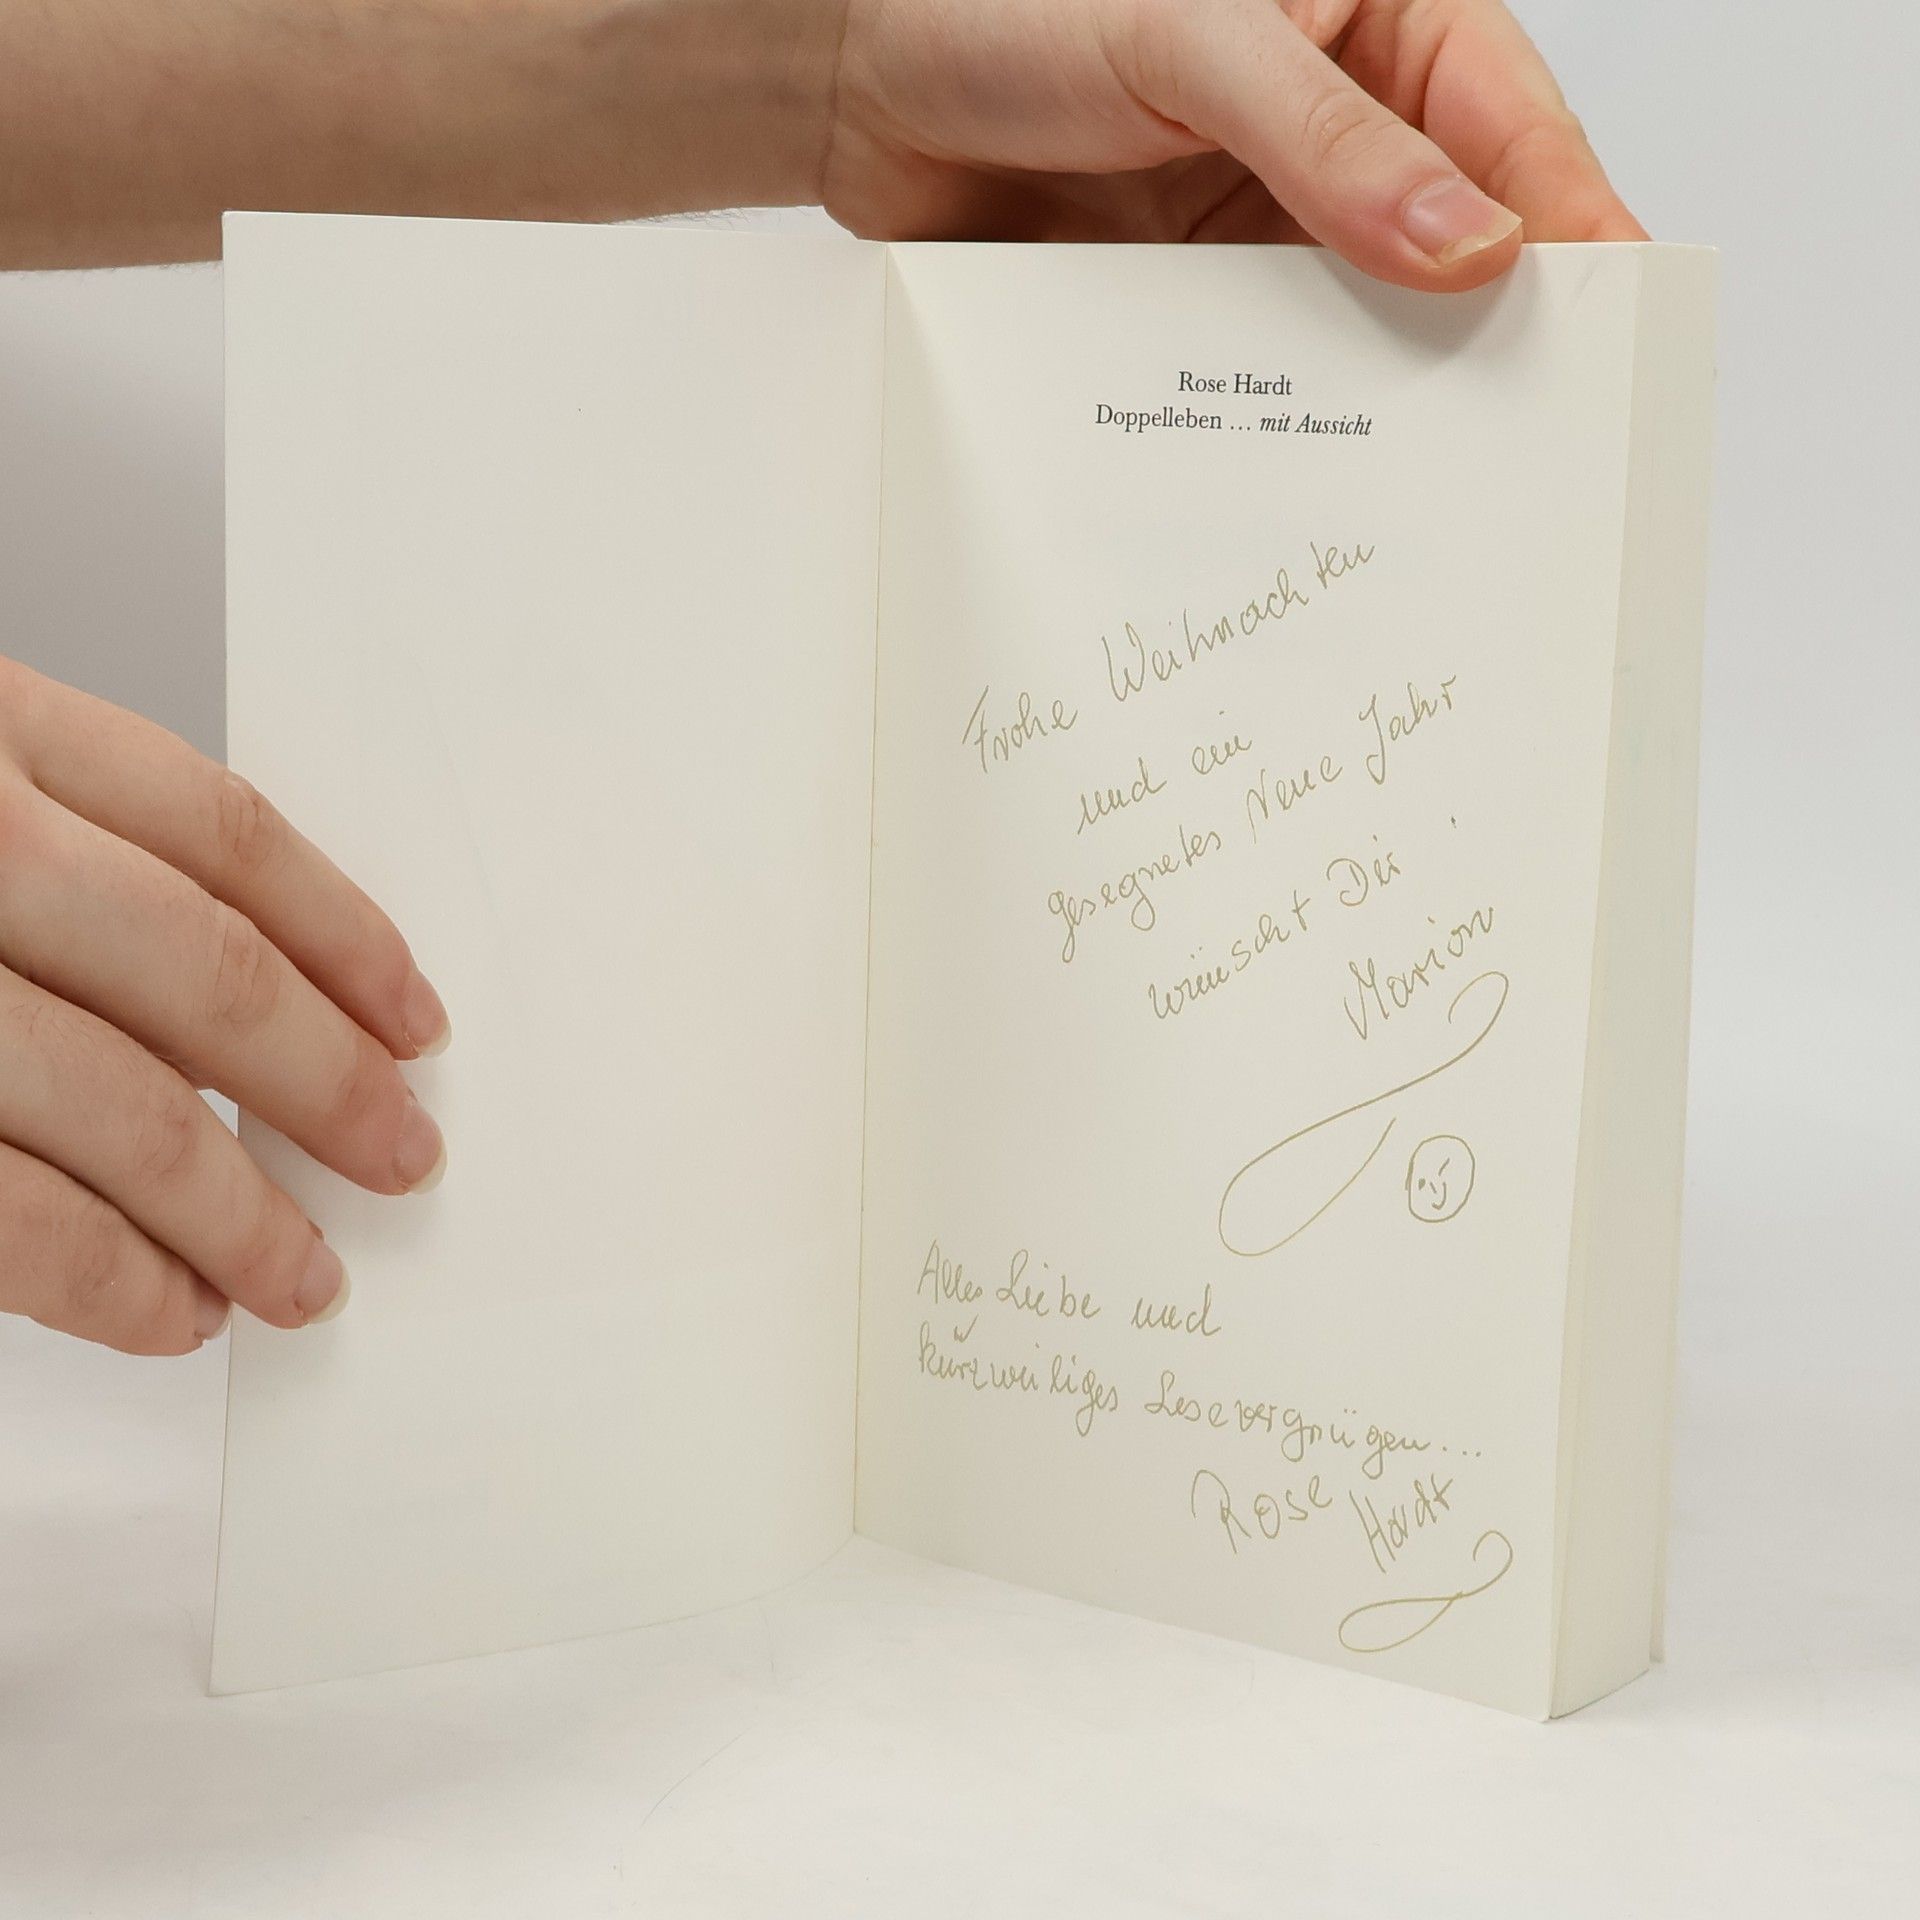 Rose Hardt
Doppelleben ... mit Aussicht
Frohe Weihnachten
und ein
gesegnetes Neue Jahr
wünscht Dir
Marion
Alles Liebe und
kurzweiliges Lesevergnügen...
Rose Hardt